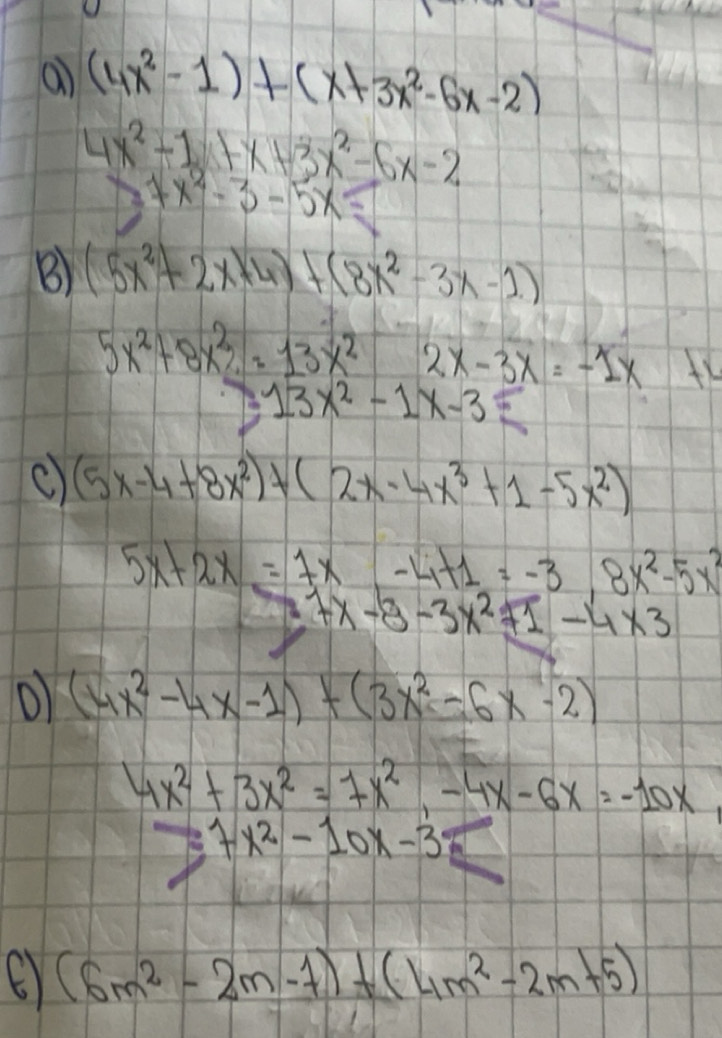 a) (4x² - 1) + (x + 3x² - 6x - 2)
4x² - 1 + x + 3x² - 6x - 2
7x² - 3 - 5x =
B) (5x² + 2x + 4) + (8x² - 3x - 1)
5x² + 8x² = 13x² 2x - 3x = -1x +4
= 13x² - 1x - 3 =
C) (5x - 4 + 8x²) + (2x - 4x³ + 1 - 5x²)
5x + 2x = 7x , -4 + 1 = -3 , 8x² - 5x²
= 7x - 8 - 3x² + 1 - 4x3
D) (4x² - 4x - 1) + (3x² - 6x - 2)
4x² + 3x² = 7x² , -4x - 6x = -10x ,
= 7x² - 10x - 3 =
E) (6m² - 2m - 7) + (4m² - 2m + 5)